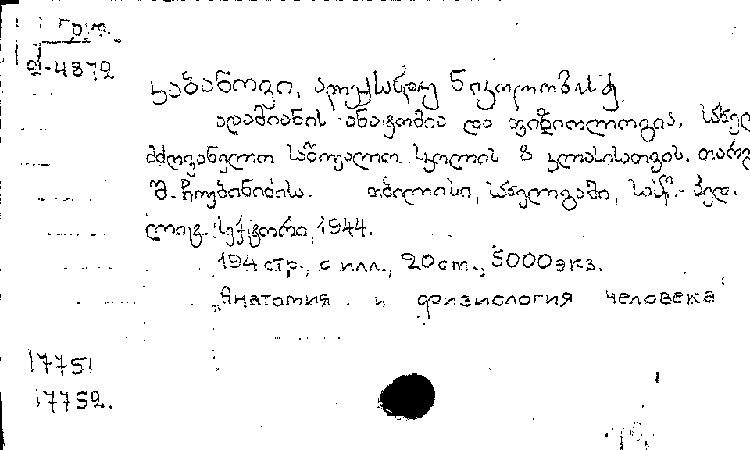 Ⴂ-4872
კაბანოვი, ალექსანდრე ნიკოლოზის ძე
ადამიანის ანატომია და ფიზიოლოგია. სახელ
მძღვანელო საშუალო სკოლის 8 კლასისათვის. თარგ
შ. ჩოუბინიძისა. თბილისი, სახელგამი, სასწ.- პედ.
ლიტ. სექტორი, 1944.
194 стр., с илл., 20 см., 5000 экз.
„Анатомия и физиология человека"
17751
17752.